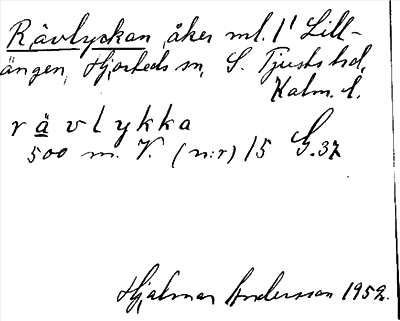 Rävlyckan, åker ml. 1' Lill-
ängen, Hjorteds sn, S. Tjusts hd,
Kalm. l.
rävlykka
500 m. V. (n:r) 15 G. 37
Hjalmar Andersson 1952.